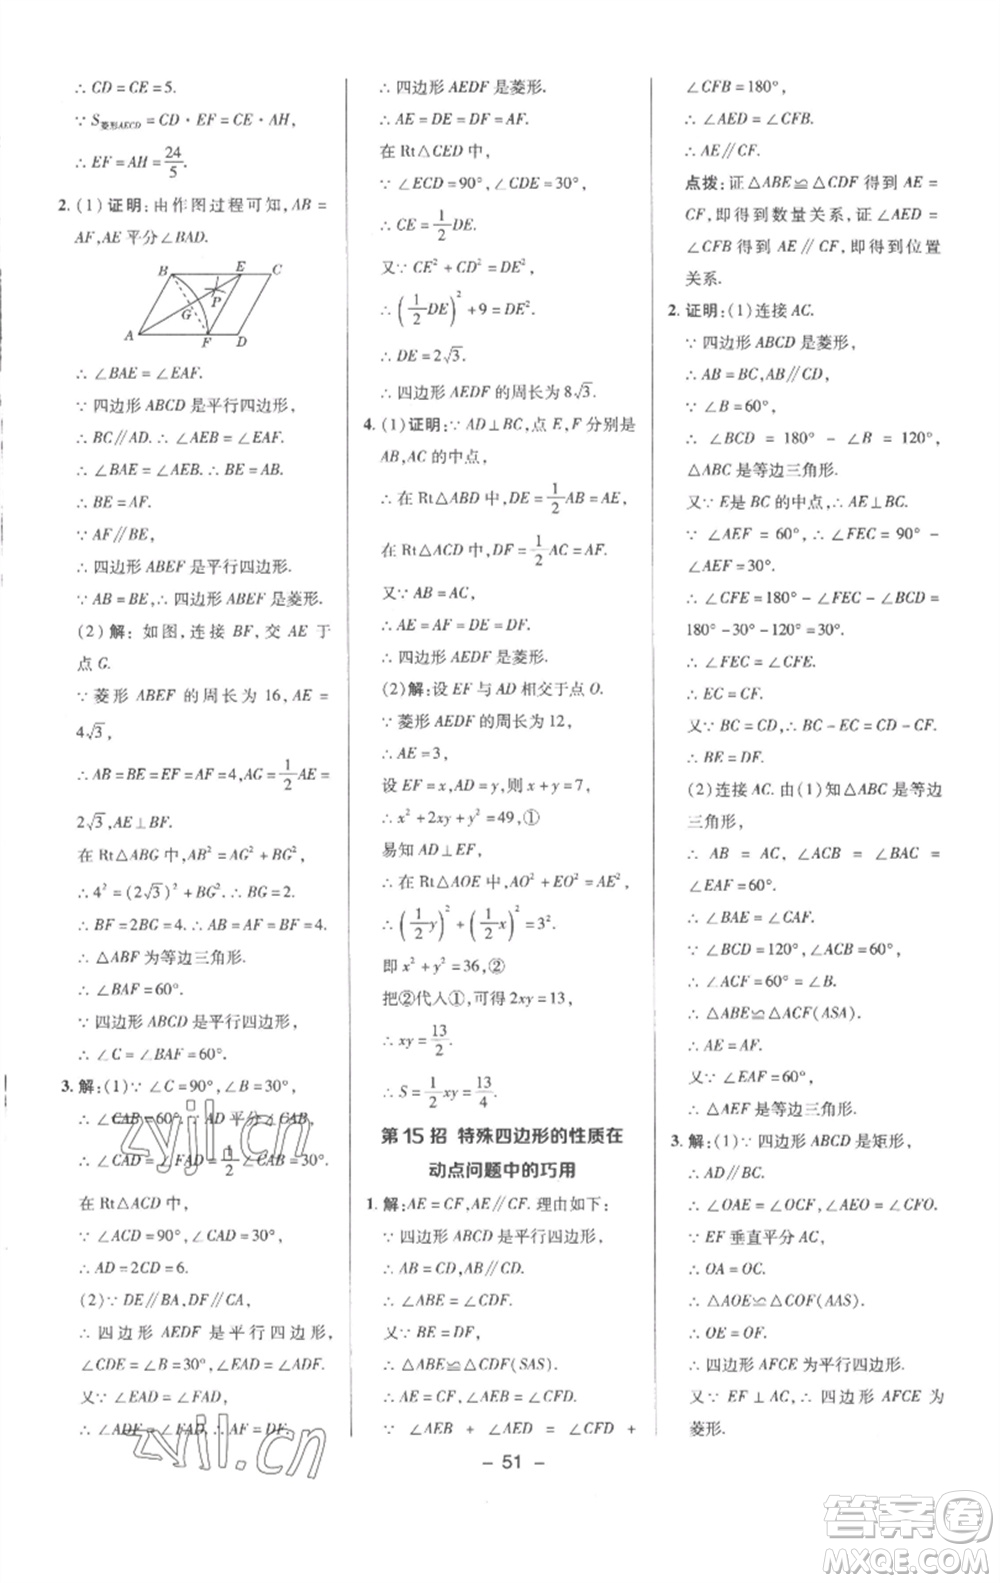 ∴ CD = CE = 5.
∵ S菱形AECD = CD · EF = CE · AH,
∴ EF = AH = 24/5.
2. (1) 证明:由作图过程可知,AB =
AF,AE 平分∠BAD.
B E C
P
G
A F D
∴ ∠BAE = ∠EAF.
∵ 四边形 ABCD 是平行四边形,
∴ BC∥AD. ∴ ∠AEB = ∠EAF.
∴ ∠BAE = ∠AEB. ∴ BE = AB.
∴ BE = AF.
∵ AF∥BE,
∴ 四边形 ABEF 是平行四边形.
∵ AB = BE,∴ 四边形 ABEF 是菱形.
(2) 解: 如图,连接 BF,交 AE 于
点 G.
∵ 菱形 ABEF 的周长为 16,AE =
4√3,
∴ AB = BE = EF = AF = 4,AG = 1/2 AE =
2√3,AE⊥BF.
在 Rt△ABG 中,AB² = AG² + BG²,
∴ 4² = (2√3)² + BG². ∴ BG = 2.
∴ BF = 2BG = 4. ∴ AB = AF = BF = 4.
∴ △ABF 为等边三角形.
∴ ∠BAF = 60°.
∵ 四边形 ABCD 是平行四边形,
∴ ∠C = ∠BAF = 60°.
3. 解:(1)∵ ∠C = 90°,∠B = 30°,
∴ ∠CAB = 60°. ∵ AD 平分∠CAB,
∴ ∠CAD = ∠FAD = 1/2 ∠CAB = 30°.
在 Rt△ACD 中,
∵ ∠ACD = 90°,∠CAD = 30°,
∴ AD = 2CD = 6.
(2)∵ DE∥BA,DF∥CA,
∴ 四边形 AEDF 是平行四边形,
∠CDE = ∠B = 30°,∠EAD = ∠ADF.
又∵ ∠EAD = ∠FAD,
∴ ∠ADF = ∠FAD. ∴ AF = DF.
∴ 四边形 AEDF 是菱形.
∴ AE = DE = DF = AF.
在 Rt△CED 中,
∵ ∠ECD = 90°,∠CDE = 30°,
∴ CE = 1/2 DE.
又∵ CE² + CD² = DE²,
∴ (1/2 DE)² + 9 = DE².
∴ DE = 2√3.
∴ 四边形 AEDF 的周长为 8√3.
4. (1)证明:∵ AD⊥BC,点 E,F 分别是
AB,AC 的中点,
∴ 在 Rt△ABD 中,DE = 1/2 AB = AE,
在 Rt△ACD 中,DF = 1/2 AC = AF.
又∵ AB = AC,
∴ AE = AF = DE = DF.
∴ 四边形 AEDF 是菱形.
(2)解:设 EF 与 AD 相交于点 O.
∵ 菱形 AEDF 的周长为 12,
∴ AE = 3,
设 EF = x,AD = y,则 x + y = 7,
∴ x² + 2xy + y² = 49,①
易知 AD⊥EF,
∴ 在 Rt△AOE 中,AO² + EO² = AE²,
∴ (1/2 y)² + (1/2 x)² = 3².
即 x² + y² = 36,②
把②代入①,可得 2xy = 13,
∴ xy = 13/2.
∴ S = 1/2 xy = 13/4.
第 15 招 特殊四边形的性质在
动点问题中的巧用
1. 解:AE = CF,AE∥CF. 理由如下:
∵ 四边形 ABCD 是平行四边形,
∴ AB = CD,AB∥CD.
∴ ∠ABE = ∠CDF.
又∵ BE = DF,
∴ △ABE≌△CDF(SAS).
∴ AE = CF,∠AEB = ∠CFD.
∵ ∠AEB + ∠AED = ∠CFD +
∠CFB = 180°,
∴ ∠AED = ∠CFB.
∴ AE∥CF.
点拨:证△ABE≌△CDF 得到 AE =
CF,即得到数量关系,证∠AED =
∠CFB 得到 AE∥CF,即得到位置
关系.
2. 证明:(1)连接 AC.
∵ 四边形 ABCD 是菱形,
∴ AB = BC,AB∥CD.
∵ ∠B = 60°,
∴ ∠BCD = 180° - ∠B = 120°,
△ABC 是等边三角形.
又∵ E是 BC 的中点,∴ AE⊥BC.
∵ ∠AEF = 60°, ∴ ∠FEC = 90° -
∠AEF = 30°.
∴ ∠CFE = 180° - ∠FEC - ∠BCD =
180° - 30° - 120° = 30°.
∴ ∠FEC = ∠CFE.
∴ EC = CF.
又∵ BC = CD,∴ BC - EC = CD - CF.
∴ BE = DF.
(2)连接 AC. 由(1)知△ABC 是等边
三角形,
∴ AB = AC, ∠ACB = ∠BAC =
∠EAF = 60°.
∴ ∠BAE = ∠CAF.
∵ ∠BCD = 120°,∠ACB = 60°,
∴ ∠ACF = 60° = ∠B.
∴ △ABE≌△ACF(ASA).
∴ AE = AF.
又∵ ∠EAF = 60°,
∴ △AEF 是等边三角形.
3. 解:(1)∵ 四边形 ABCD 是矩形,
∴ AD∥BC.
∴ ∠OAE = ∠OCF,∠AEO = ∠CFO.
∵ EF 垂直平分 AC,
∴ OA = OC.
∴ △AOE≌△COF(AAS).
∴ OE = OF.
∴ 四边形 AFCE 为平行四边形.
又∵ EF⊥AC,∴ 四边形 AFCE 为
菱形.
- 51 -
zyjl.cn
zyjl.cn
答案圈
MXQE.COM